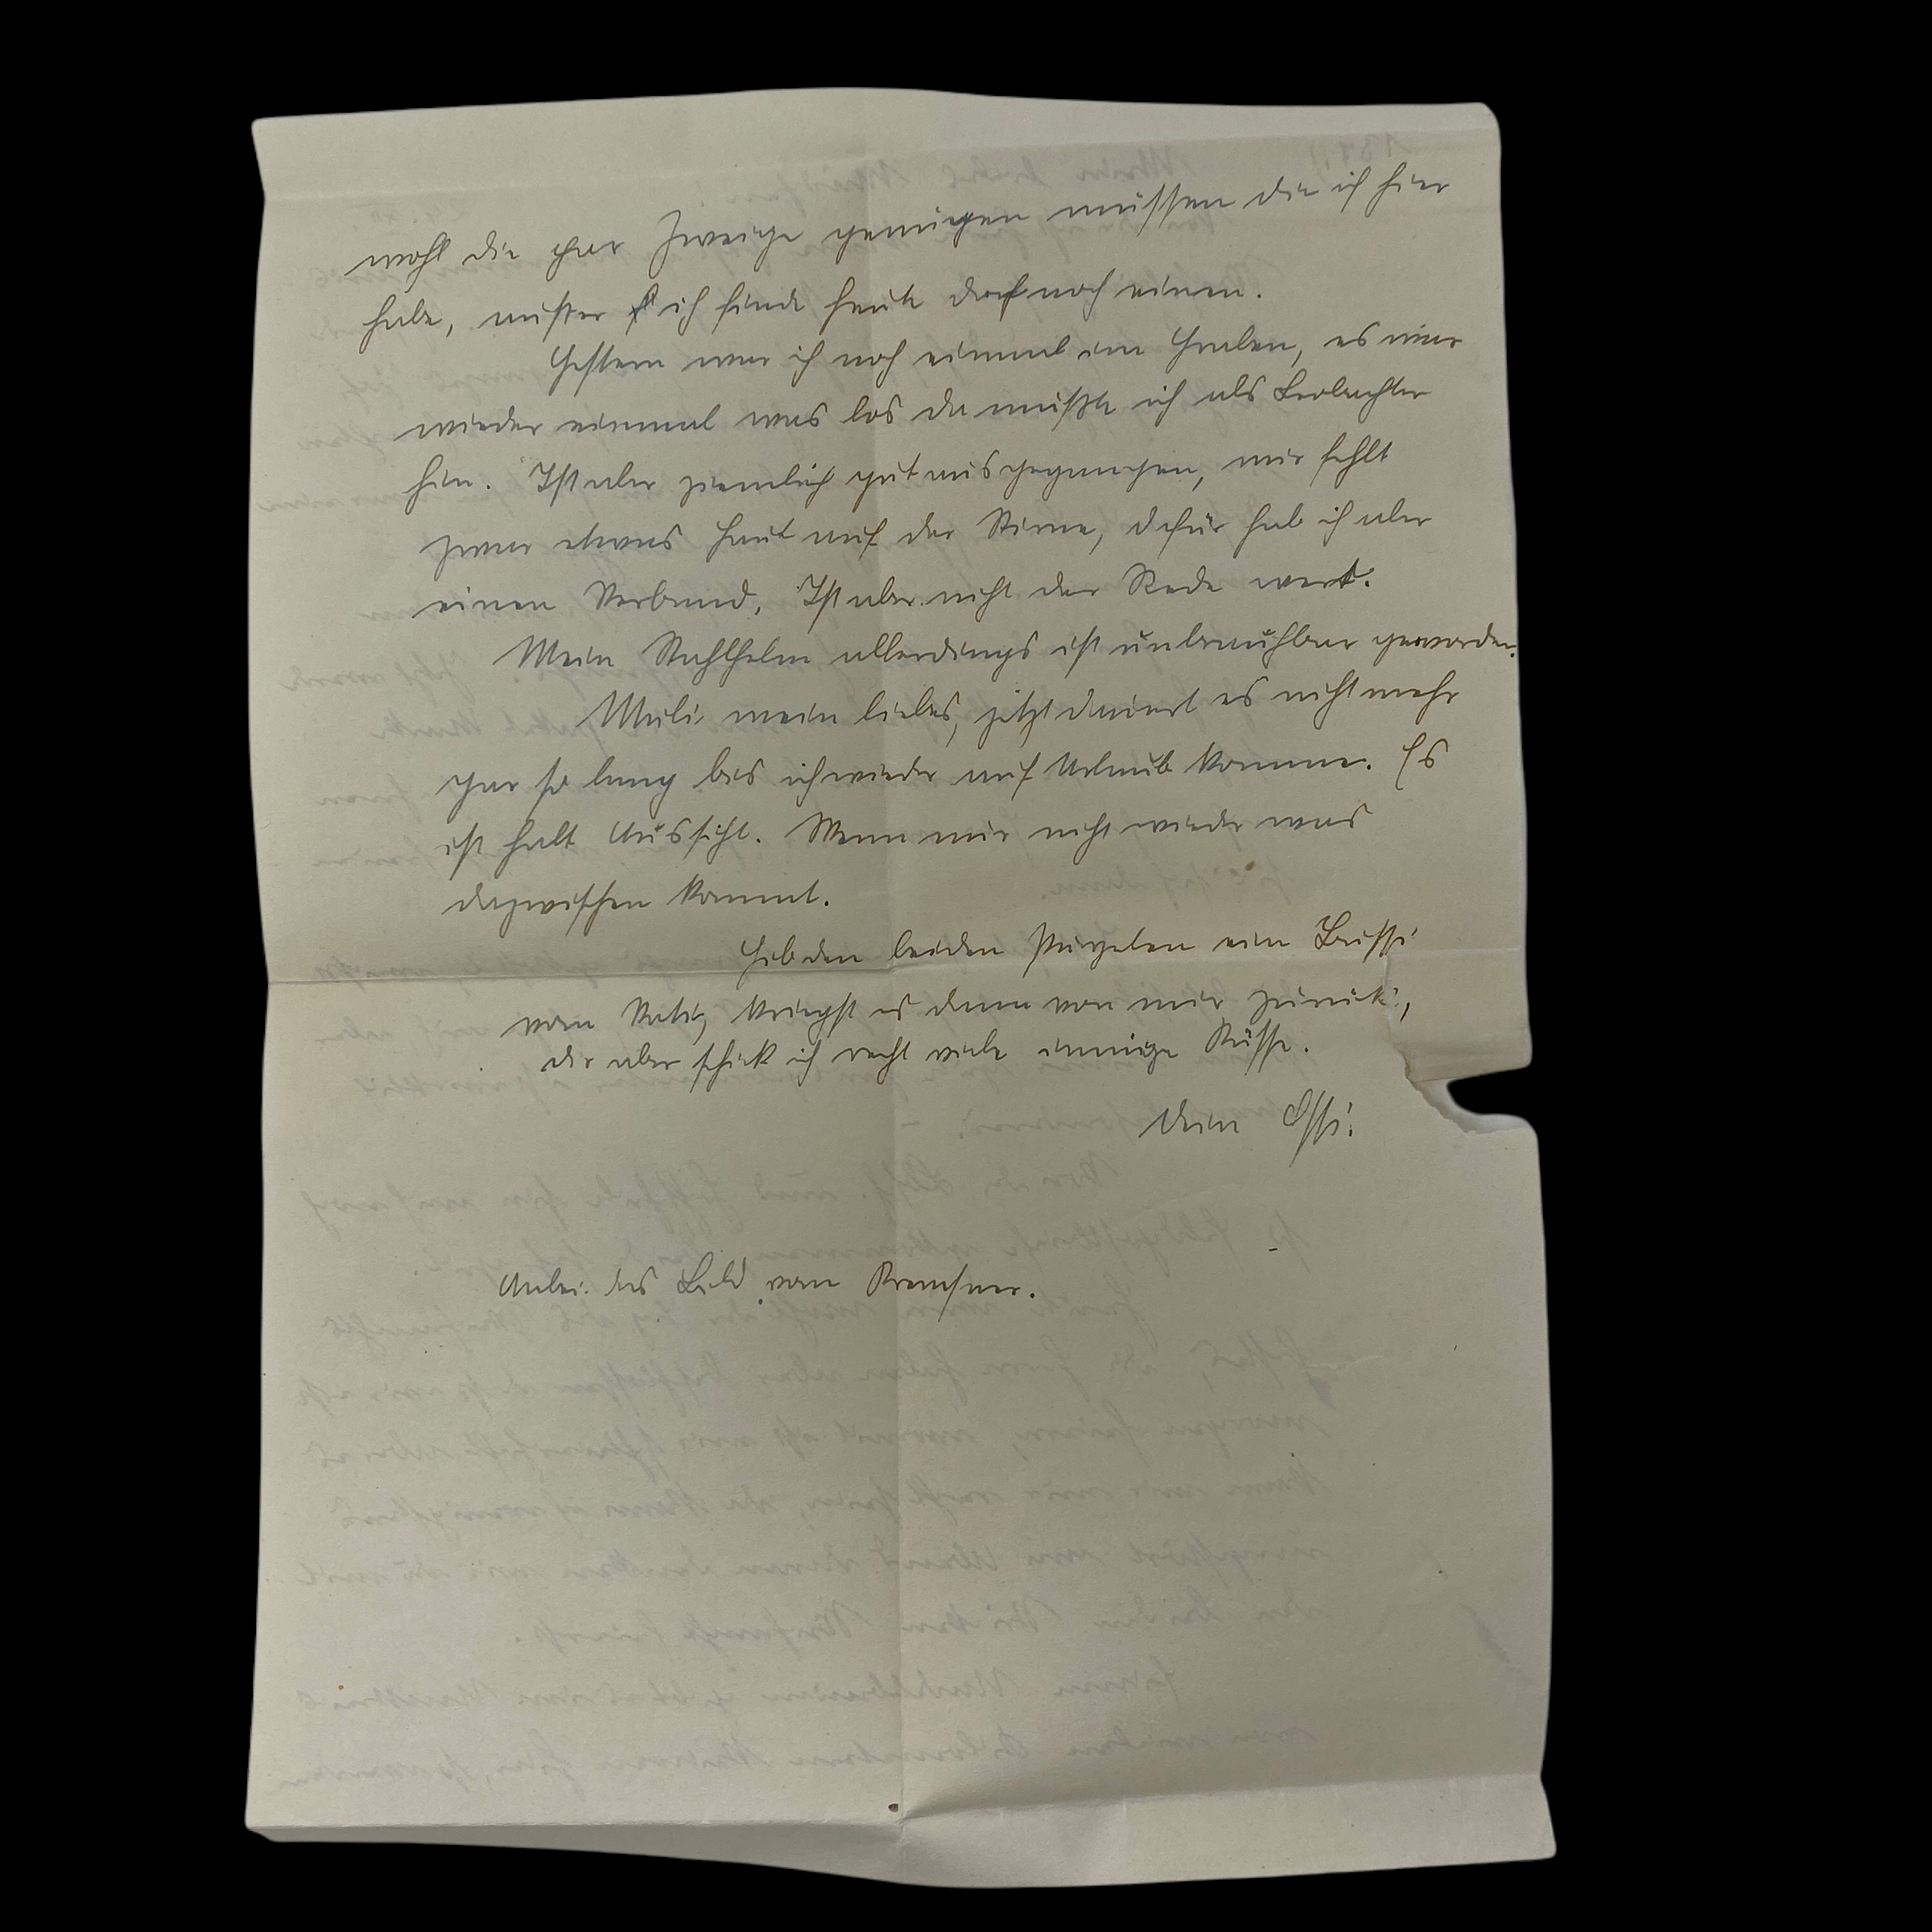 wohl die paar Zweige genügen müssen die ich hier
habe, außer ich finde heute doch noch einen.
Gestern war ich noch einmal im Graben, es war
wieder einmal was los da mußte ich als Beobachter
hin. Ist aber ziemlich gut ausgegangen, mir fehlt
zwar etwas Haut auf der Stirne, dafür hab ich aber
einen Verband. Ist aber nicht der Rede wert.
Mein Stahlhelm allerdings ist unbrauchbar geworden.
mein liebes, jetzt dauert es nicht mehr
gar so lang bis ich wieder auf Urlaub komme. Es
ist halt Aussicht. Wenn mir nicht wieder was
dazwischen kommt.
Gib den beiden Purzeln ein Bussi
vom Vati, kriegst es dann von mir zurück,
dir aber schick ich recht viele innige Küsse.
Dein Ossi.
Anbei das Bild vom